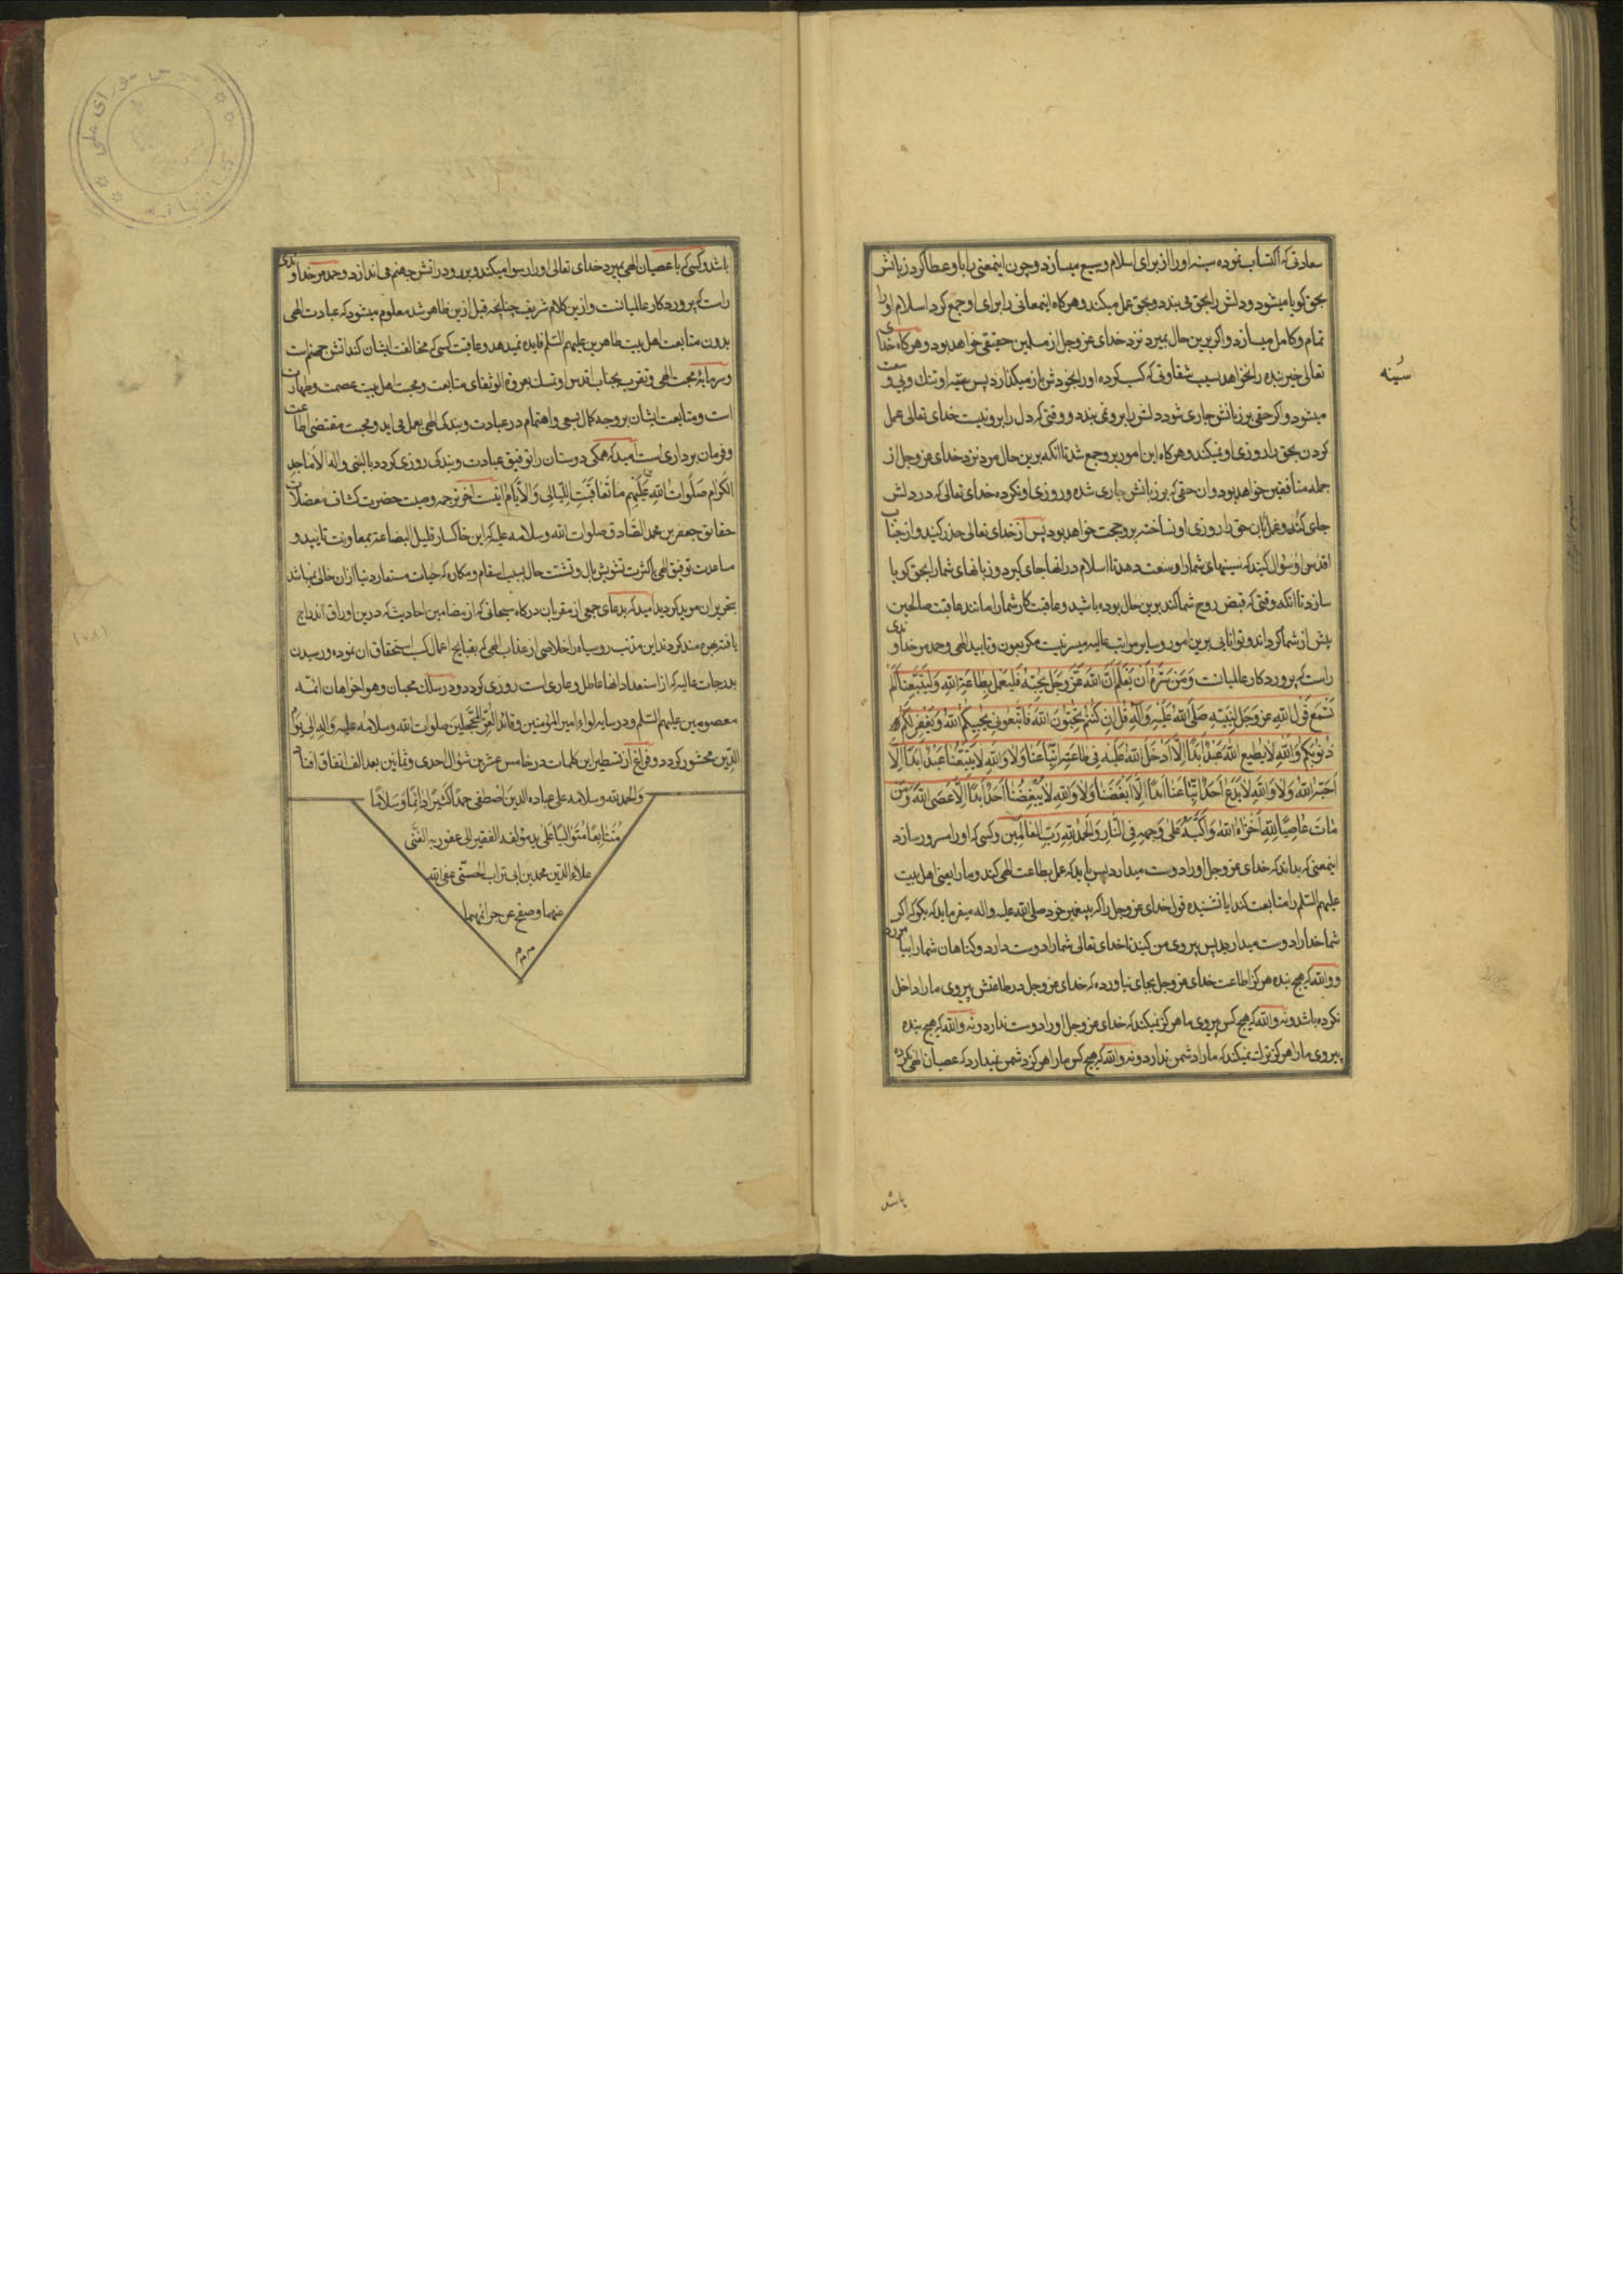 سعادتی که اکتساب نموده سینه او را از برای اسلام وسیع میسازد و چون اینمعنی را باو عطا کرد زبانش
بحق کویا میشود و دلش را بحق می بندد و بحق عمل میکند و هرکاه اینمعانی را برای او جمع کرد اسلام او را
تمام و کامل میسازد و اکر برین حال بمیرد نزد خدای عز و جل از مسلمین حقیقی خواهد بود و هرکاه خدای
تعالی خیر بنده را نخواهد بسبب شقاوتی که کسب کرده او را بخودش باز میکذارد پس سینه او تنک و بی وسعت
میشود و اکر حقی بر زبانش جاری شود دلش را برو نمی بندد و وقتی که دل را برو نبست خدای تعالی عمل
کردن بحق را روزی او نمیکند و هرکاه این امور برو جمع شد تا انکه برین حال مرد نزد خدای عز و جل از
جمله منافقین خواهد بود و ان حقی که بر زبانش جاری شده و روزی او نکرده خدای تعالی که در دلش
جای کند و عمل بان حق را روزی او نساخته برو حجت خواهد بود پس از خدای تعالی حذر کنید و از جناب
اقدس او سؤال کنید که سینهای شما را وسعت دهد تا اسلام در انها جای کیرد و زبانهای شما را بحق کویا
سازد تا انکه وقتی که قبض روح شما کند برین حال بوده باشید و عاقبت کار شما را مانند عاقبت صالحین
پیش از شما کرداند و توانایی برین امور و سایر مراتب عالیه میسر نیست مکر بعون و تایید الهی و حمد مر خداوندی
راست که پروردکار عالمیانست وَمَن سَرَّهُ اَنْ یَعْلَمَ اَنَّ اللّهَ عَزَّ وَجَلَّ یُحِبُّهُ فَلْیَعْمَلْ بِطَاعَةِ اللّهِ وَلْیَتَّبِعْنَا اَلَمْ
یَسْمَعْ قَوْلَ اللّهِ عز وَجَلَ لِنَبِیِّهِ صَلَّی اللّهُ عَلَیْهِ وَآلِهِ قُلْ اِن کُنتُمْ تُحِبُّونَ اللّهَ فَاتَّبِعُونِی یُحْبِبْکُمُ اللّهُ وَیَغْفِرْ لَکُمْ
ذُنُوبَکُمْ وَاللّهِ لَا یُطِیعُ اللّهَ عَبْدٌ اَبَدًا اِلَّا اَدْخَلَ اللّهُ عَلَیْهِ فِی طَاعَتِهِ اتِّبَاعَنَا وَلَا وَاللّهِ لَا یَتَّبِعُنَا عَبْدٌ اَبَدًا اِلَّا
اَحَبَّهُ اللّهُ وَلَا وَاللّهِ لَا یَدَعُ اَحَدٌ اتِّبَاعَنَا اَبَدًا اِلَّا اَبْغَضَنَا وَلَا وَاللّهِ لَا یُبْغِضُنَا اَحَدٌ اَبَدًا اِلَّا عَصَی اللّهَ وَمَن
مَاتَ عَاصِیًا لِلّهِ اَخْزَاهُ اللّهُ وَاَکَبَّهُ عَلَی وَجْهِهِ فِی النَّارِ وَالْحَمْدُ لِلّهِ رَبِّ الْعَالَمِین و کسی که او را مسرور سازد
اینمعنی که بداند که خدای عز و جل او را دوست میدارد پس باید که عمل بطاعت الهی کند و ما را یعنی اهل بیت
علیهم السلم را متابعت کند ایا نشنیده قول خدای عز و جل را که پیغمبر خود صلی الله علیه و اله میفرماید که بکو که اکر
شما خدا را دوست میدارید پس پیروی من کنید تا خدای تعالی شما را دوست دارد و کناهان شما را بیامرزد
و والله که هیچ بنده هرکز اطاعت خدای عز و جل بجای نیاورده که خدای عز و جل در طاعتش پیروی ما را داخل
نکرده باشد و نه والله که هیچ کس پیروی ما هرکز نمیکند که خدای عز و جل او را دوست ندارد و نه والله که هیچ بنده
پیروی ما را هرکز ترک نمیکند که ما را دشمن ندارد و نه والله که هیچ کس ما را هرکز دشمن نمیدارد که عصیان الهی نکرده
سینه
باشد
باشد و کسی که با عصیان الهی بمیرد خدای تعالی او را رسوا میکند و برو در اتش جهنم می اندازد و حمد مر خداوندی
راست که پروردکار عالمیانست و ازین کلام شریف چنانچه قبل ازین ظاهر شد معلوم میشود که عبادت الهی
بدون متابعت اهل بیت طاهرین علیهم السلم فایده نمیدهد و عاقبت کسی که مخالفت ایشان کند اتش جهنم است
و سرمایه محبت الهی و تقرب بجناب اقدس او تمسک بعروة الوثقای متابعت و محبت اهل بیت عصمت و طهارت
است و متابعت ایشان بر وجه کمال بسعی و اهتمام در عبادت و بندکی الهی بعمل می اید و محبت مقتضی اطاعت
و فرمان برداری است امید که همکی دوستان را توفیق عبادت و بندکی روزی کردد بالنبی و اله الاماجد
الکرام صَلَوات اللّهِ عَلَیْهِم مَا تَعَاقَبَتِ اللَّیَالِی وَالْاَیَّام اینست اخر ترجمه وصیت حضرت کشاف معضلات
حقایق جعفر بن محمد الصادق صلوات الله و سلامه علیه که این خاکسار قلیل البضاعة بمعاونت تایید و
مساعدت توفیق الهی با کثرت تشویش بال و تشتت حال بسبب اسقام و مکاره که حیات مستعار دنیا ازان خالی نمیباشد
بتحریر ان موید کردید امید که بدعای جمعی از مقربان درکاه سبحانی که از مضامین احادیث که درین اوراق اندراج
یافته بهره مند کردند این مذنب روسیاه را خلاصی از عذاب الهی که بقبایح اعمال کسب استحقاق ان نموده و رسیدن
بدرجات عالیه که از استعداد انها عاطل و عاری است روزی کردد و در سلک محبان و هواخواهان ائمه
معصومین علیهم السلم و در سایه لواء امیر المؤمنین و قائد الغر المحجلین صلوات الله و سلامه علیه و اله الی یوم
الدین محشور کردد و فراغ از تسطیر این کلمات در خامس عشرین شوال احدی و ثمانین بعد الف اتفاق افتاد
والحمد لله و سلامه علی عباده الذین اصطفی حمدًا کثیرًا دائمًا وَسَلَامًا
مُتَتَابِعًا مُتَوَالِیًا عَلَی ید مؤلفه الفقیر الی عفو ربه الغنی
علاء الدین محمد بن ابی تراب الحسنی عفی الله
عنهما و صفح عن جرائمهما
۱۰۸۱